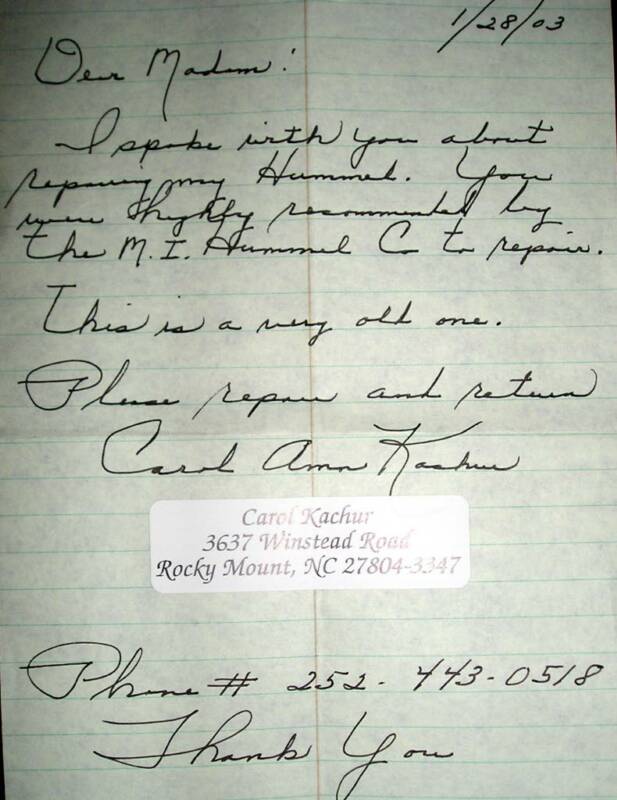 1/28/03
Dear Madam:
I spoke with you about
repairing my Hummel. You
were highly recommended by
the M.I. Hummel Co to repair.
This is a very old one.
Please repair and return
Carol Ann Kachur
Carol Kachur
3637 Winstead Road
Rocky Mount, NC 27804-3347
Phone # 252-443-0518
Thank You